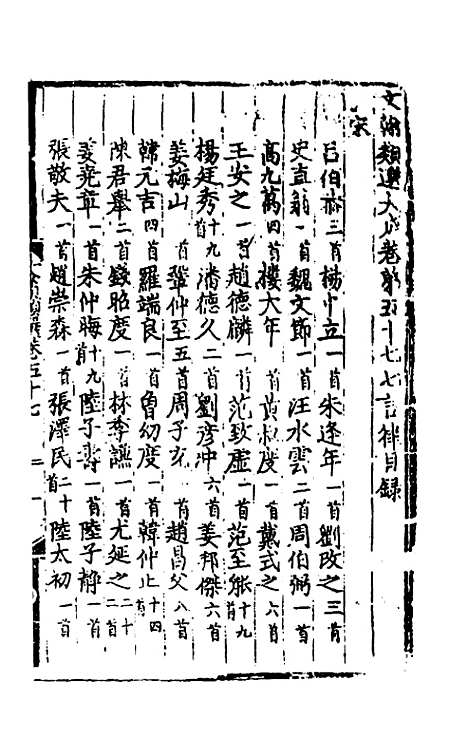 文翰類選大成卷第五十七七言律目錄
宋
呂伯恭三首 楊中立一首 朱逢年一首 劉改之三首
史直翁一首 魏文節一首 汪水雲二首 周伯弼一首
高九萬四首 樓大年一首 黃叔度一首 戴式之六首
王安之一首 趙德麟一首 范致虛一首 范至能十九首
楊廷秀十九首 潘德久二首 劉彥冲六首 姜邦傑六首
姜梅山一首 鞏仲至五首 周子充一首 趙昌父八首
韓元吉四首 羅端良一首 曾幼度一首 韓仲止十四首
陳君舉二首 錢昭度一首 林季謙一首 尤延之二十二首
姜堯章一首 朱仲晦十九首 陸子壽一首 陸子靜一首
張敬夫一首 趙崇森一首 張澤民二十首 陸太初一首
卷五十七